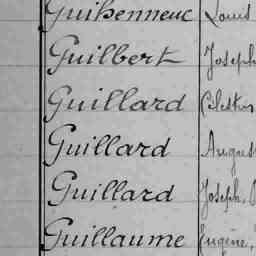 Guihenneuc Louis
Guilbert Joseph
Guillard Célestin
Guillard August
Guillard Joseph,
Guillaume Eugène,